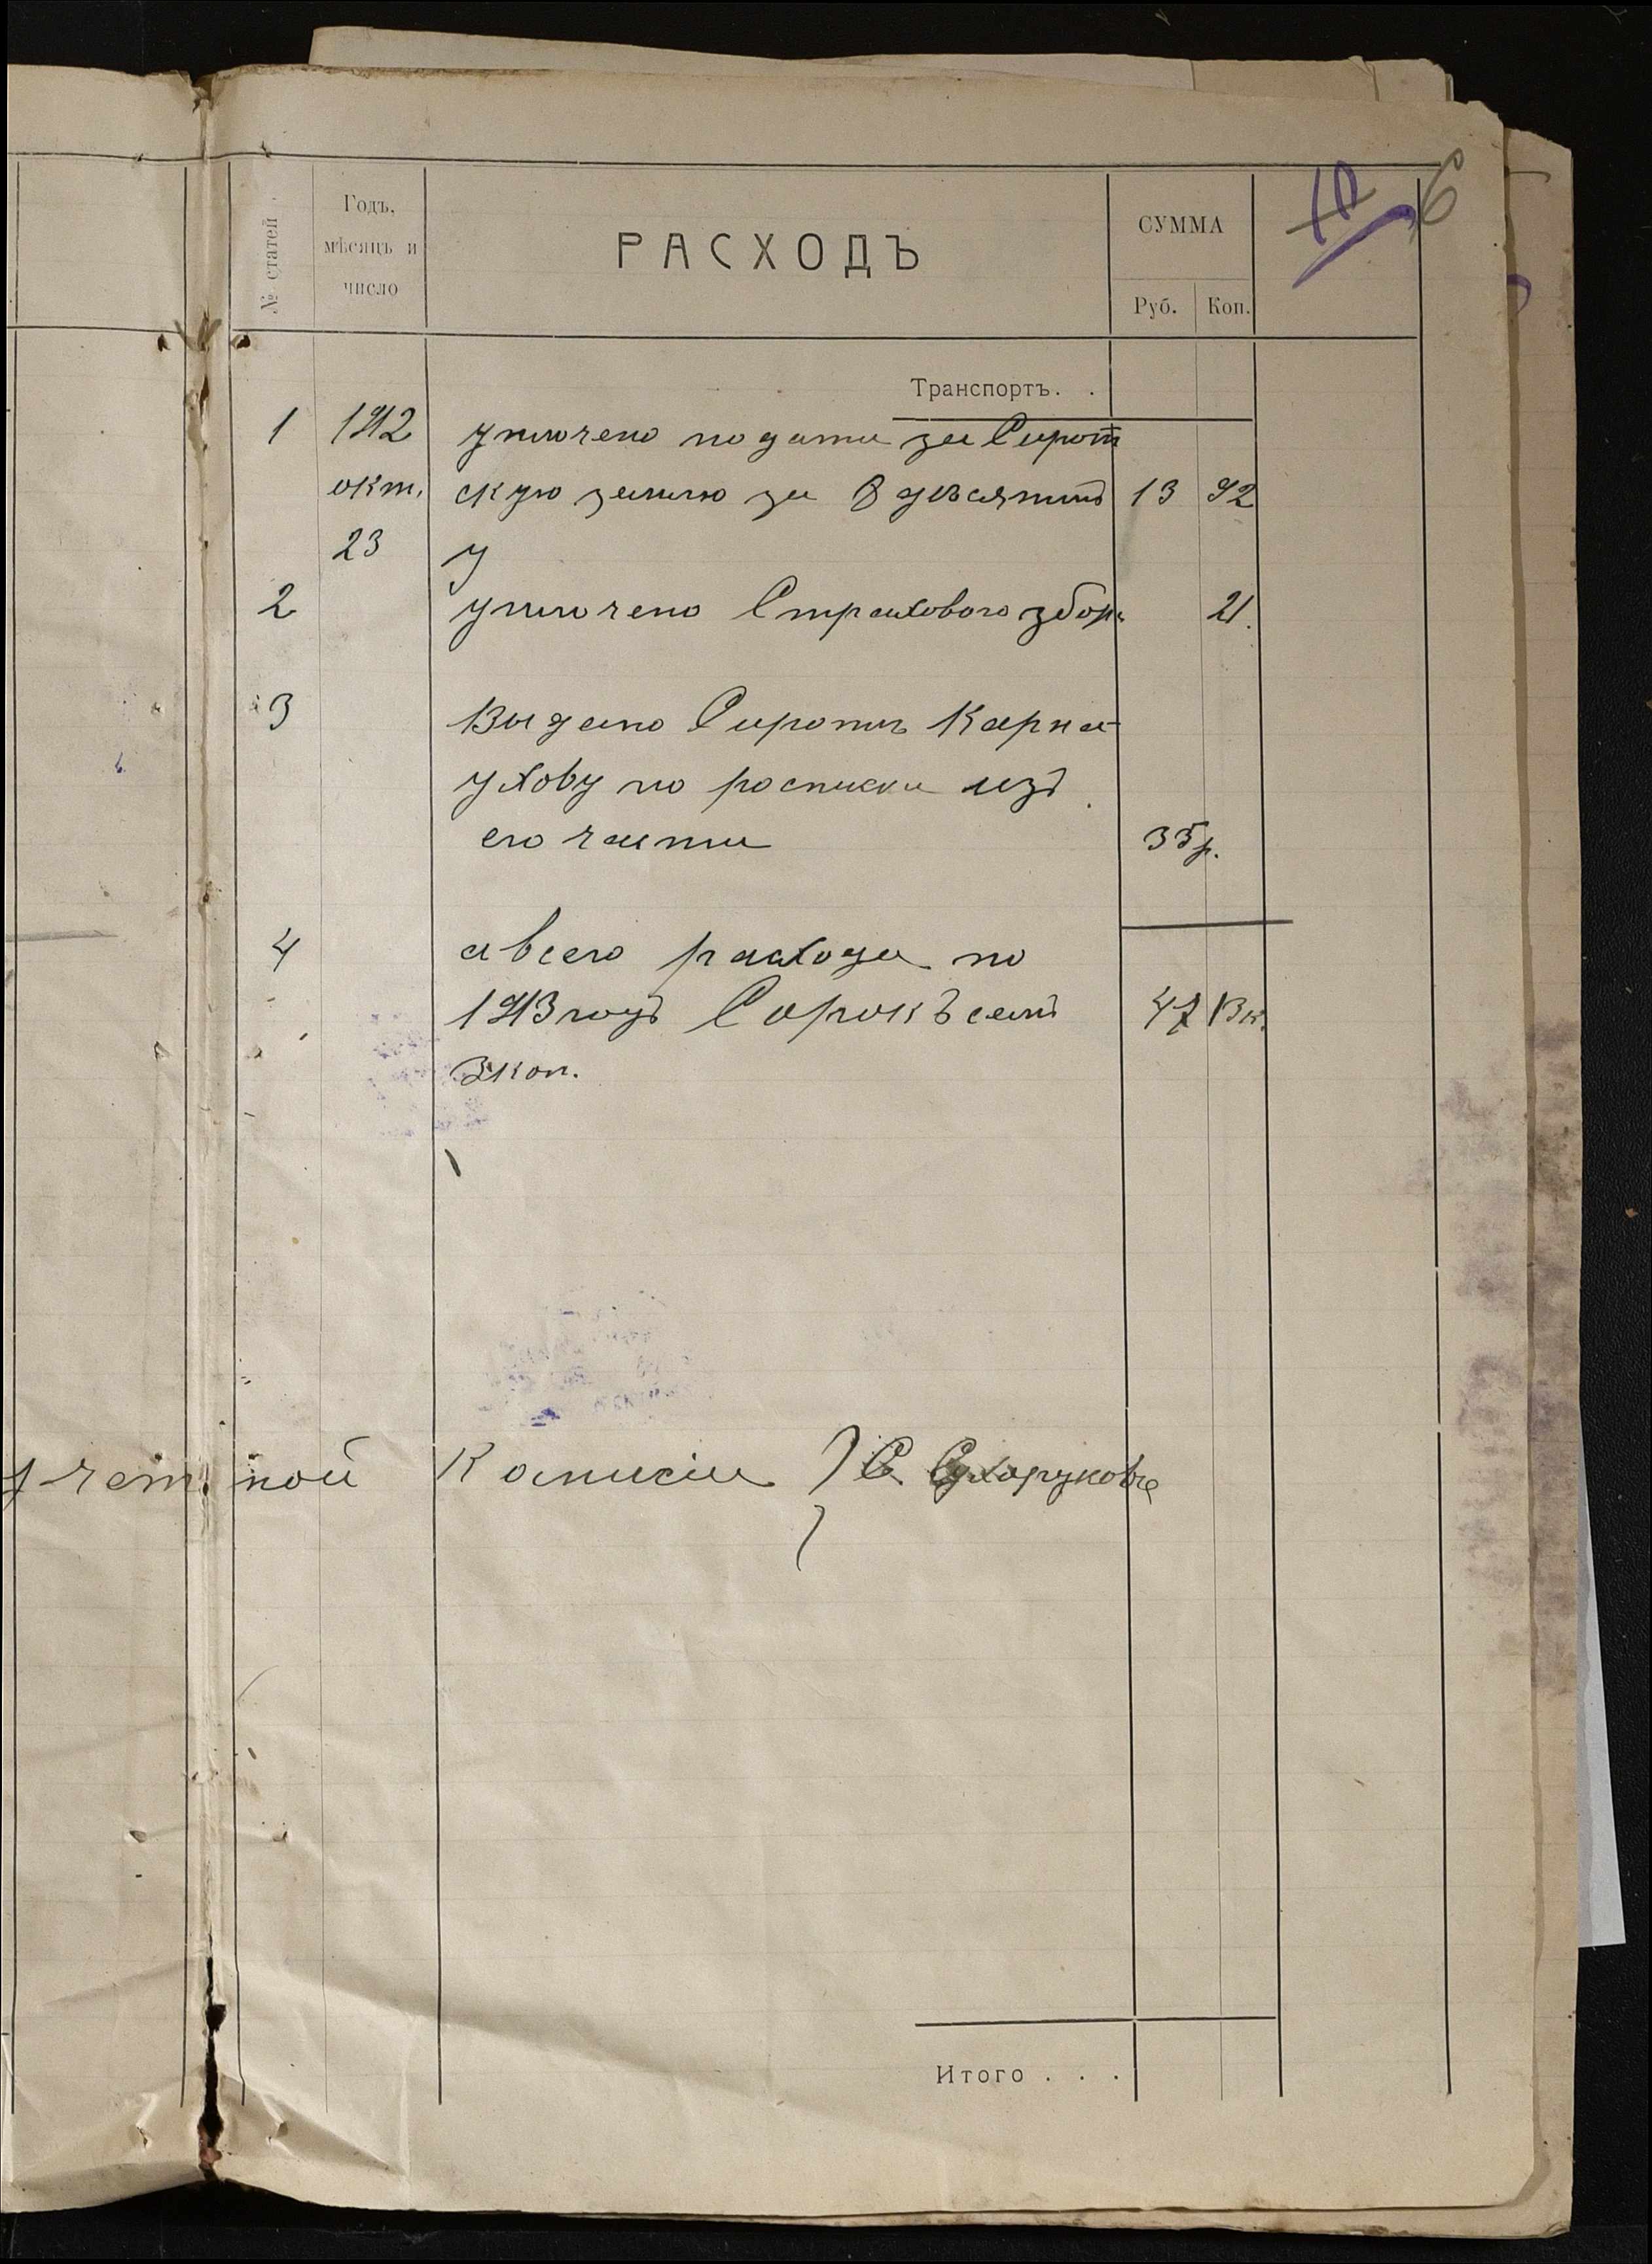 № статей
Годъ,
мѣсяцъ и
число
РАСХОДЪ
СУММА
Руб. Коп.
6
Транспортъ. .
1 1912 уплочено подати за Сирот
окт. скую землю за 8 дѣсятинъ 13 92
23 у
2 уплочено Страхового збора 21.
3 Выдано Сироти Карна
ухову по росписки изъ
его части 35р.
4 а всего расхода по
1913 годъ Сорокъ семъ 47 13 к.
3 коп.
учетной Комисіи С. Сухоруковъ
Итого . . .